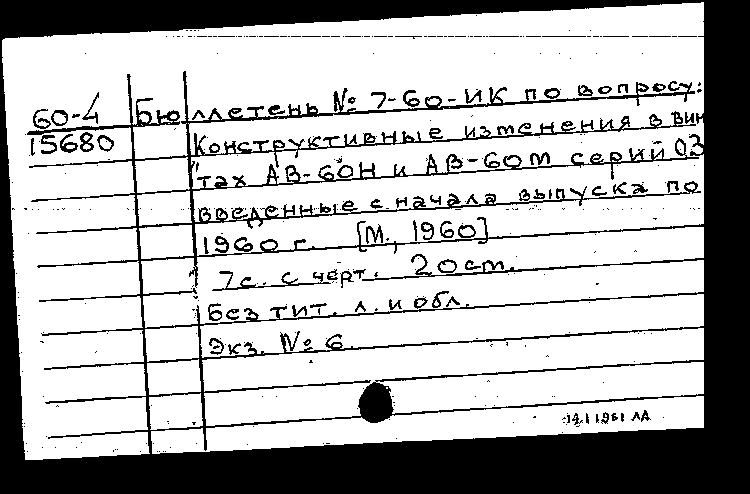 60-4
15680
Бюллетень № 7-60-ИК по вопросу:
Конструктивные изменения в вин
тах АВ-60Н и АВ-60М серий 03
введенные с начала выпуска по
1960 г. [М., 1960]
7 с. с черт. 20 см.
Без тит. л. и обл.
Экз. № 6.